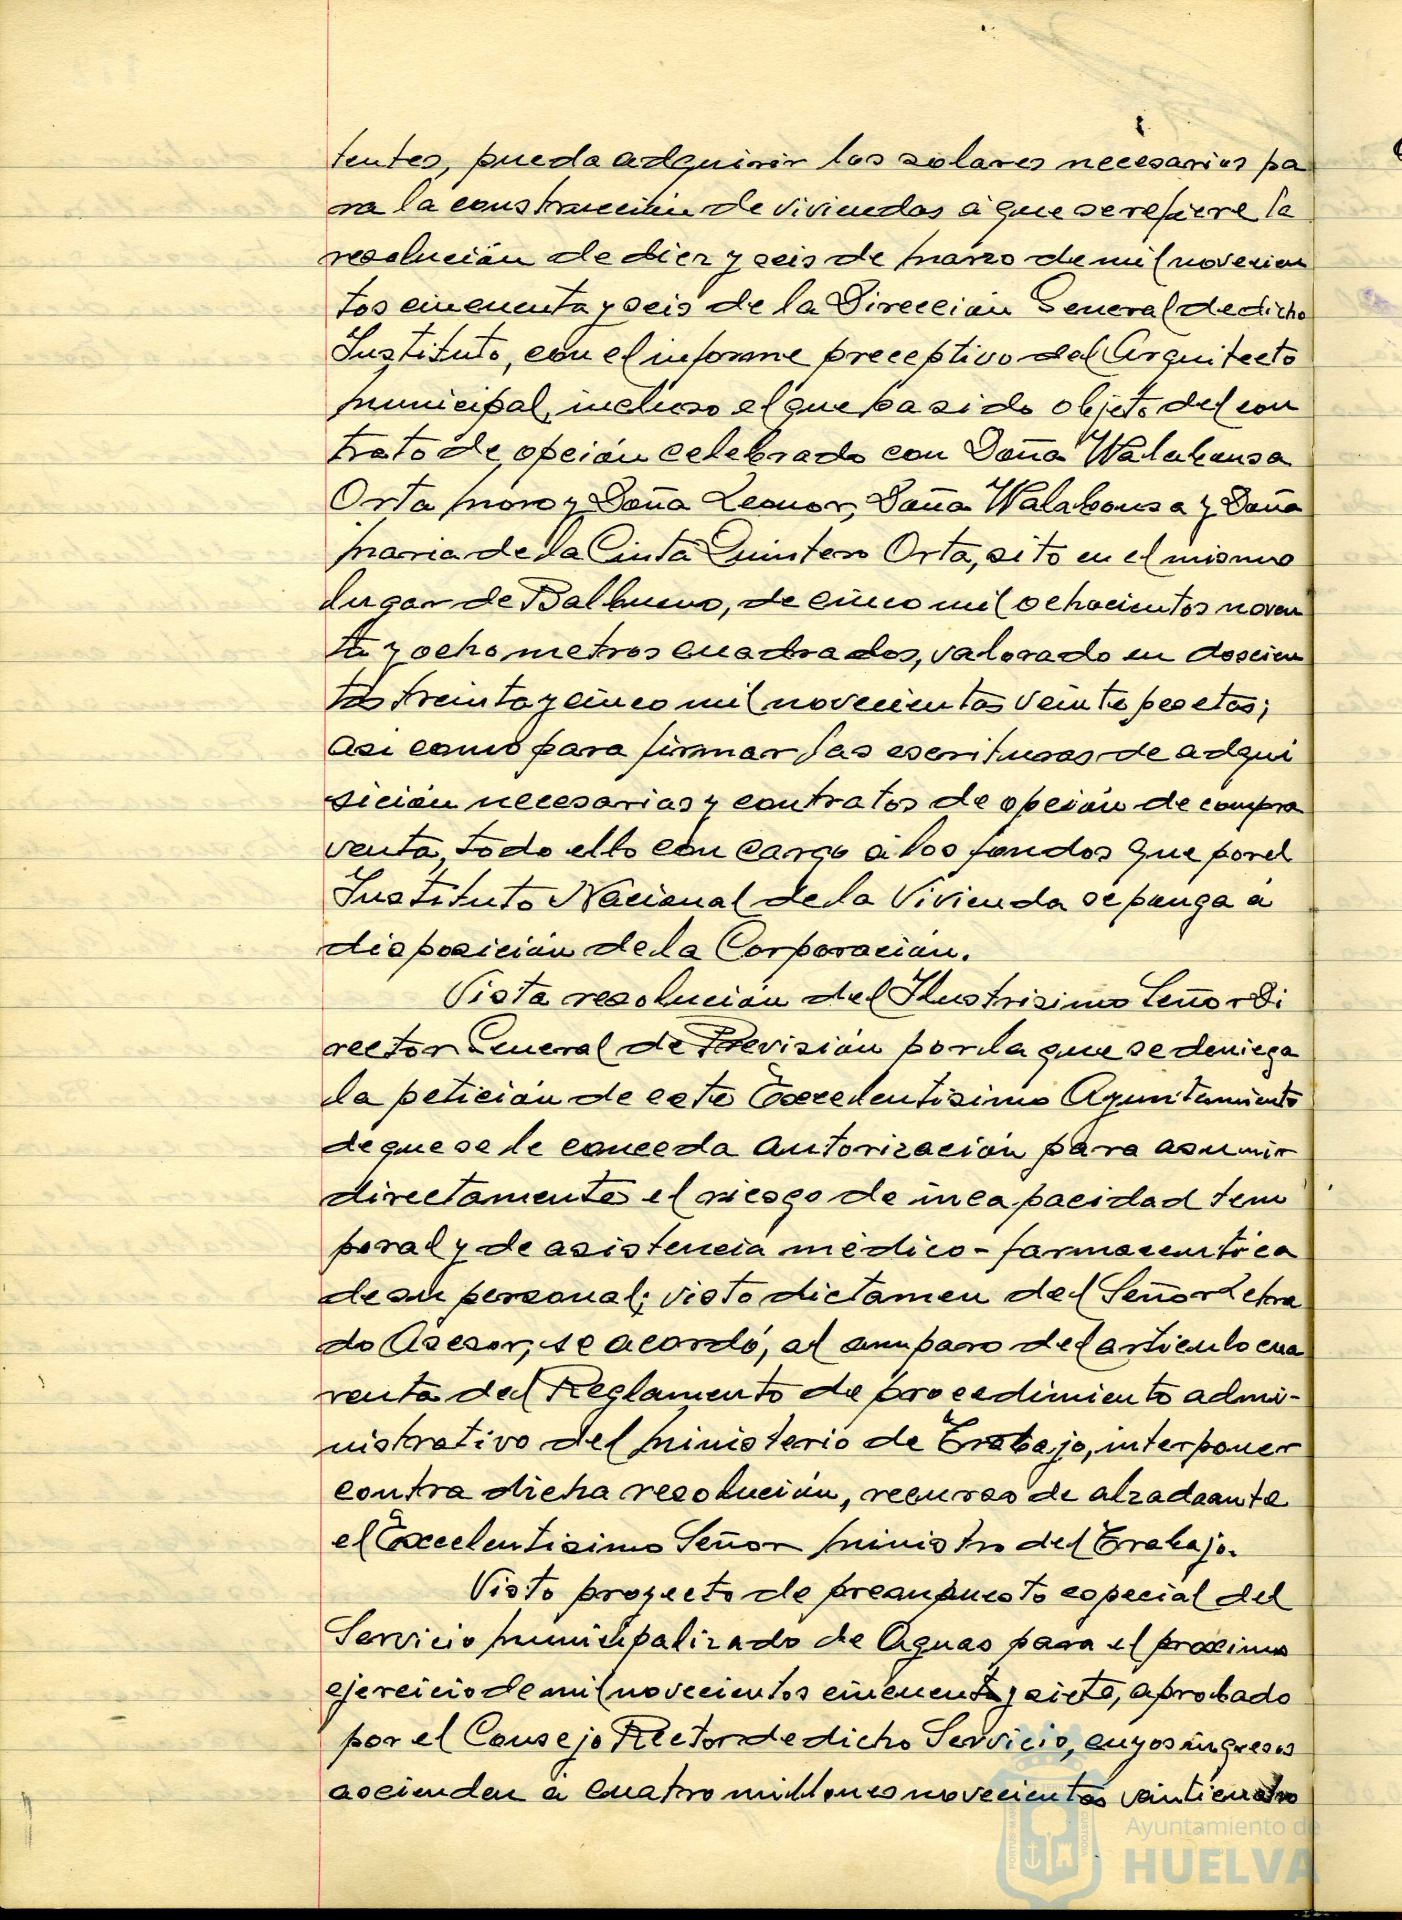 tentes, pueda adquirir los solares necesarios pa
ra la construcción de viviendas a que se refiere la
resolución de diez y seis de marzo de mil novecien
tos cincuenta y seis de la Dirección General de dicho
Instituto, con el informe preceptivo del Arquitecto
municipal, incluso el que ha sido objeto del con
trato de opción celebrado con Doña Walabonsa
Orta moro y Doña Leonor, Doña Walabonsa y Doña
maria de la Cinta Quintero Orta, sito en el mismo
lugar de Balbueno, de cinco mil ochocientos noven
ta y ocho metros cuadrados, valorado en doscien
tas treinta y cinco mil novecientas veinte pesetas;
asi como para firmar las escrituras de adqui
sición necesarias y contratos de opción de compra
venta, todo ello con cargo a los fondos que por el
Instituto Nacional de la Vivienda se ponga a
disposición de la Corporación.
Vista resolución del Ilustrisimo Señor Di
rector General de Previsión por la que se deniega
la petición de este Excelentisimo Ayuntamiento
de que se le conceda autorización para asumir
directamente el riesgo de incapacidad tem
poral y de asistencia médico-farmaceutica
de su personal; visto dictamen del Señor Letra
do Asesor, se acordó, al amparo del articulo cua
renta del Reglamento de procedimiento admi-
nistrativo del ministerio de Trabajo, interponer
contra dicha resolución, recurso de alzada ante
el Excelentisimo Señor ministro del Trabajo.
Visto proyecto de presupuesto especial del
Servicio municipalizado de Aguas para el proximo
ejercicio de mil novecientos cincuenta y siete, aprobado
por el Consejo Rector de dicho Servicio, cuyos ingresos
ascienden a cuatro millones novecientas veinticuatro
Ayuntamiento de
HUELVA